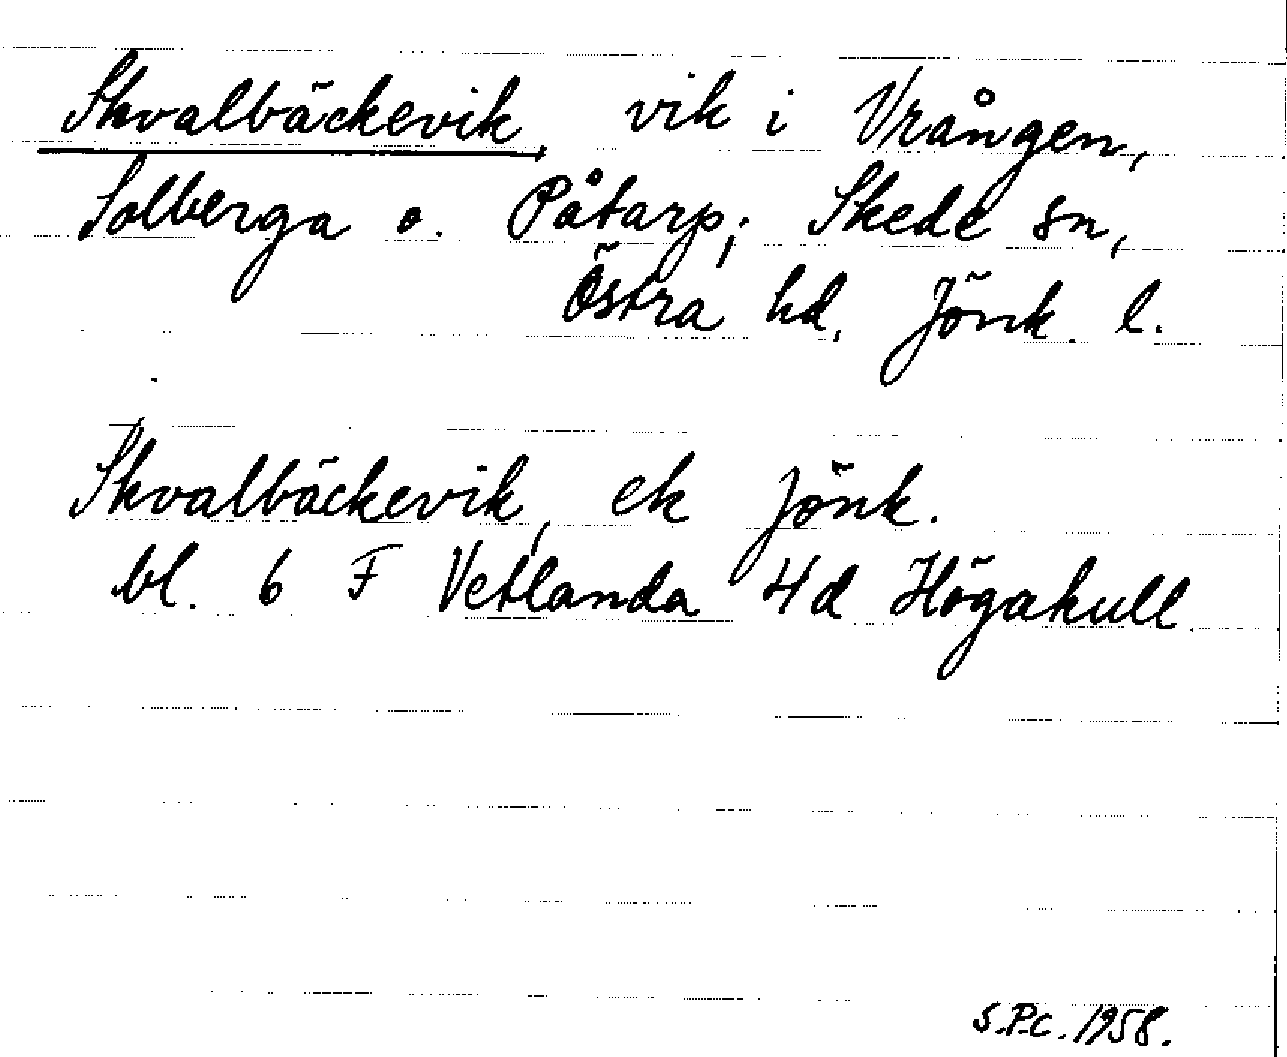 Skvalbäckevik, vik i Vrången,
Solberga o. Påtarp; Skede sn,
Östra hd, Jönk. l.
Skvalbäckevik, ek Jönk.
bl. 6 F Vetlanda 4d Högakull.
S.P.C. 1958.